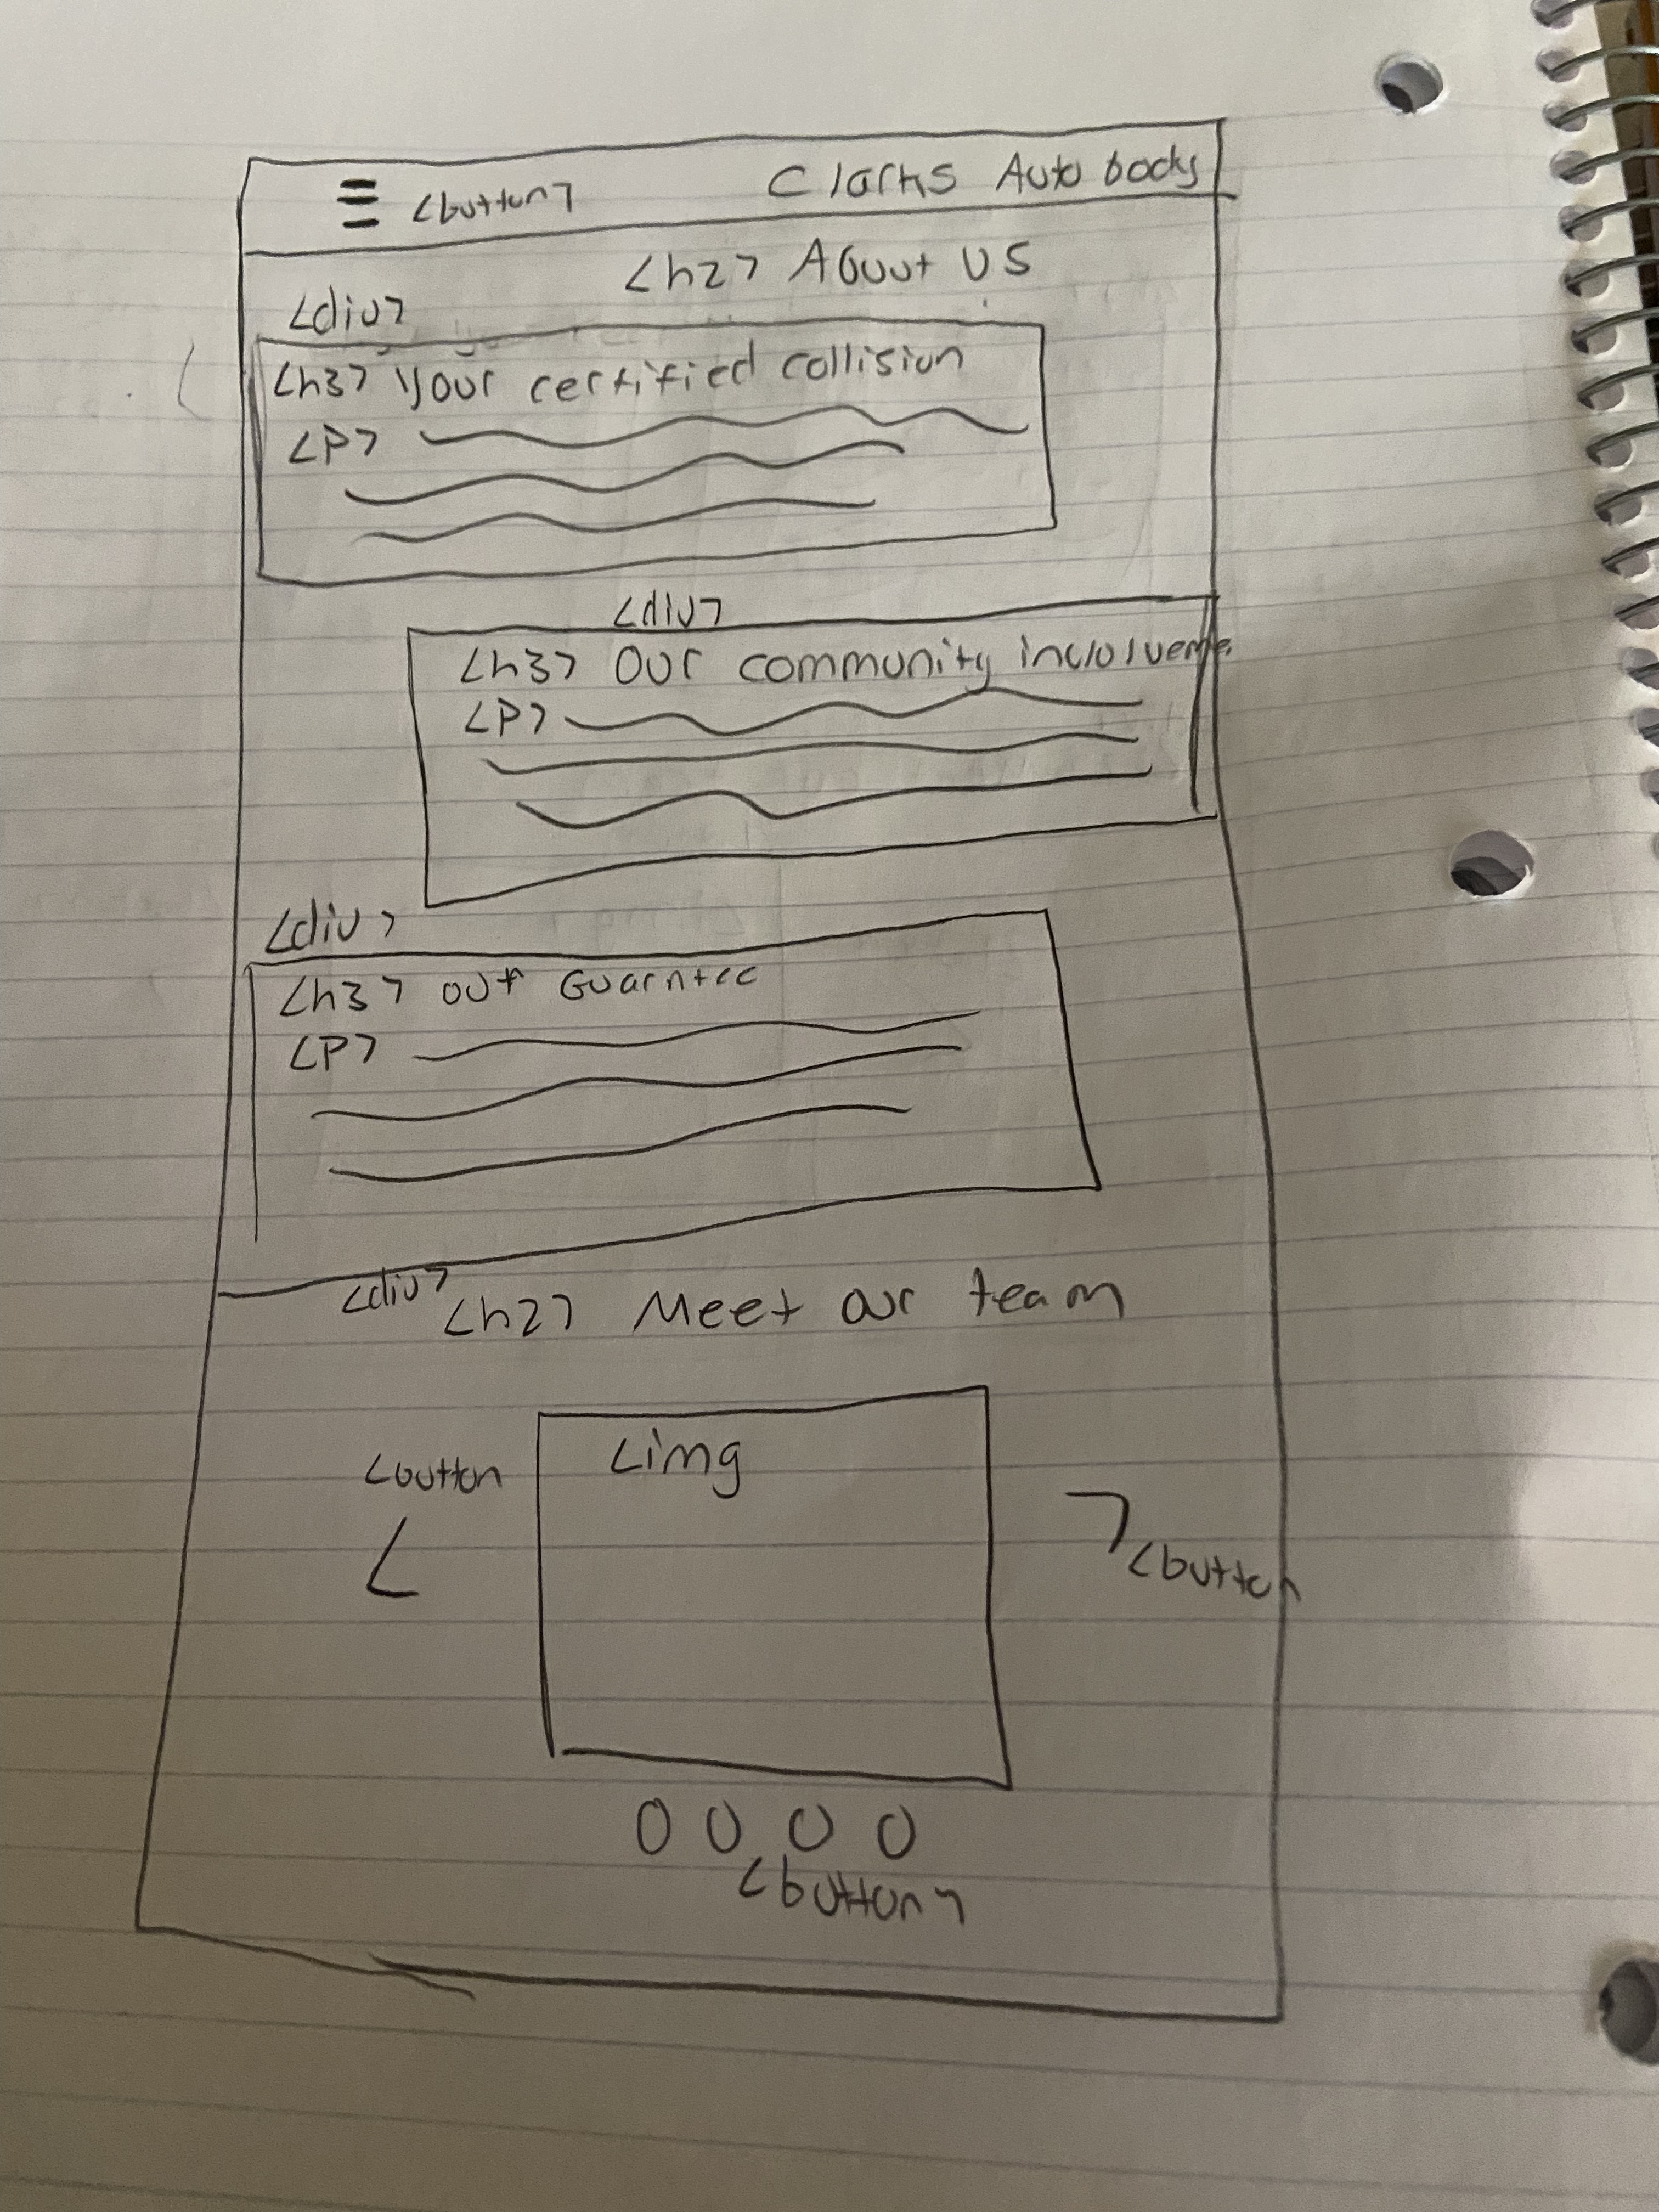 <button> Clarks Auto body
<h2> About US
<div>
<h3> Your certified collision
<P>
<div>
<h3> Our community involveme
<P>
<div>
<h3> Our Guarntee
<P>
<div>
<h2> Meet our team
<img
<button
<
>
<button
0 0 0 0
<button>